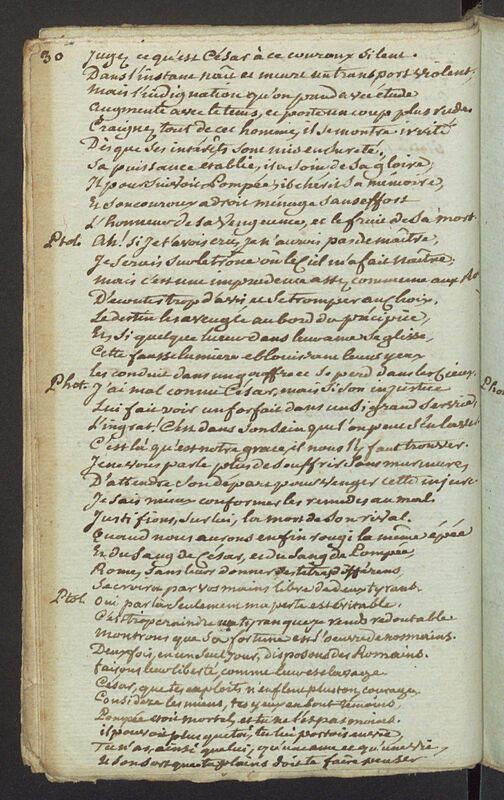 30
Jugez ce qu'est César à ce couroux silent.
Dans l'instant nait et meurt un transport violent,
mais l'indignation qu'on prend avec étude
augmente avec le tems, et porte un coup plus rude.
Craignez tout de cet homme, il se montre irrité
Dès que ses intérêts sont mis en sureté,
Sa puissance etablie, il a soin de sa gloire,
Il poursuivoit Pompée, il chérit sa mémoire,
Et son couroux adroit ménage sans effort
L'honneur de sa vengeance, et le fruit de sa mort
Ptol. Ah! si je t'avois cru, je n'aurois pas de maître,
Je serois sur le trône où le Ciel m'a fait naître;
mais c'est une imprudence assez commune aux Roi
D'écouter trop d'avis et se tromper au choix.
Le destin les aveugle au bord du précipice,
Et, si quelque lueur dans leur ame se glisse,
Cette fausse lumière eblouissant leurs yeux
les conduit dans un gouffre et se perd dans les Cieux.
Phot. J'ai mal connu César, mais si son injustice
Lui fait voir un forfait dans un si grand service,
L'ingrat! C'est dans son sein que l'on peut
C'est là qu'est notre grace, il nous l'y faut trouver.
Je ne vous parle plus de souffrir sans murmure,
D'attendre son départ pour venger cette injure
Je sais mieux conformer les remedes au mal.
Justifions, sur lui, la mort de son rival.
Quand nous aurons enfin rougi la même épée
Et du sang de César, et du sang de Pompée
Rome, sans leur donner des titres différens,
Se croira par vos mains libre de deux tyrans.
Ptol. Oui par là seulement ma perte est évitable.
C'est trop craindre un tyran que je rends redoutable
montrons que sa fortune est l'oeuvre de nos mains.
Deux fois, en un seul jour, disposons des Romains.
faisons leur liberté, comme leur esclavage
César, que tes exploits n'enflent plus ton courage
Considère les miens, tes yeux en sont témoins,
Pompée etoit mortel, et tu ne l'es pas moins.
il pouvoit plus que toi, tu lui portois envie,
Tu n'as, ainsi que lui, qu'une ame et qu'une vie,
et son sort que tu plains doit te faire penser
Phot